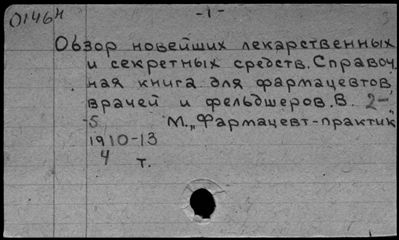 01464
-1-
Обзор новейших лекарственных
и секретных средств. Справоч-
ная книга для фармацевтов,
врачей и фельдшеров. В. 2-
-5. М., „Фармацевт-практик",
1910-13
4 т.